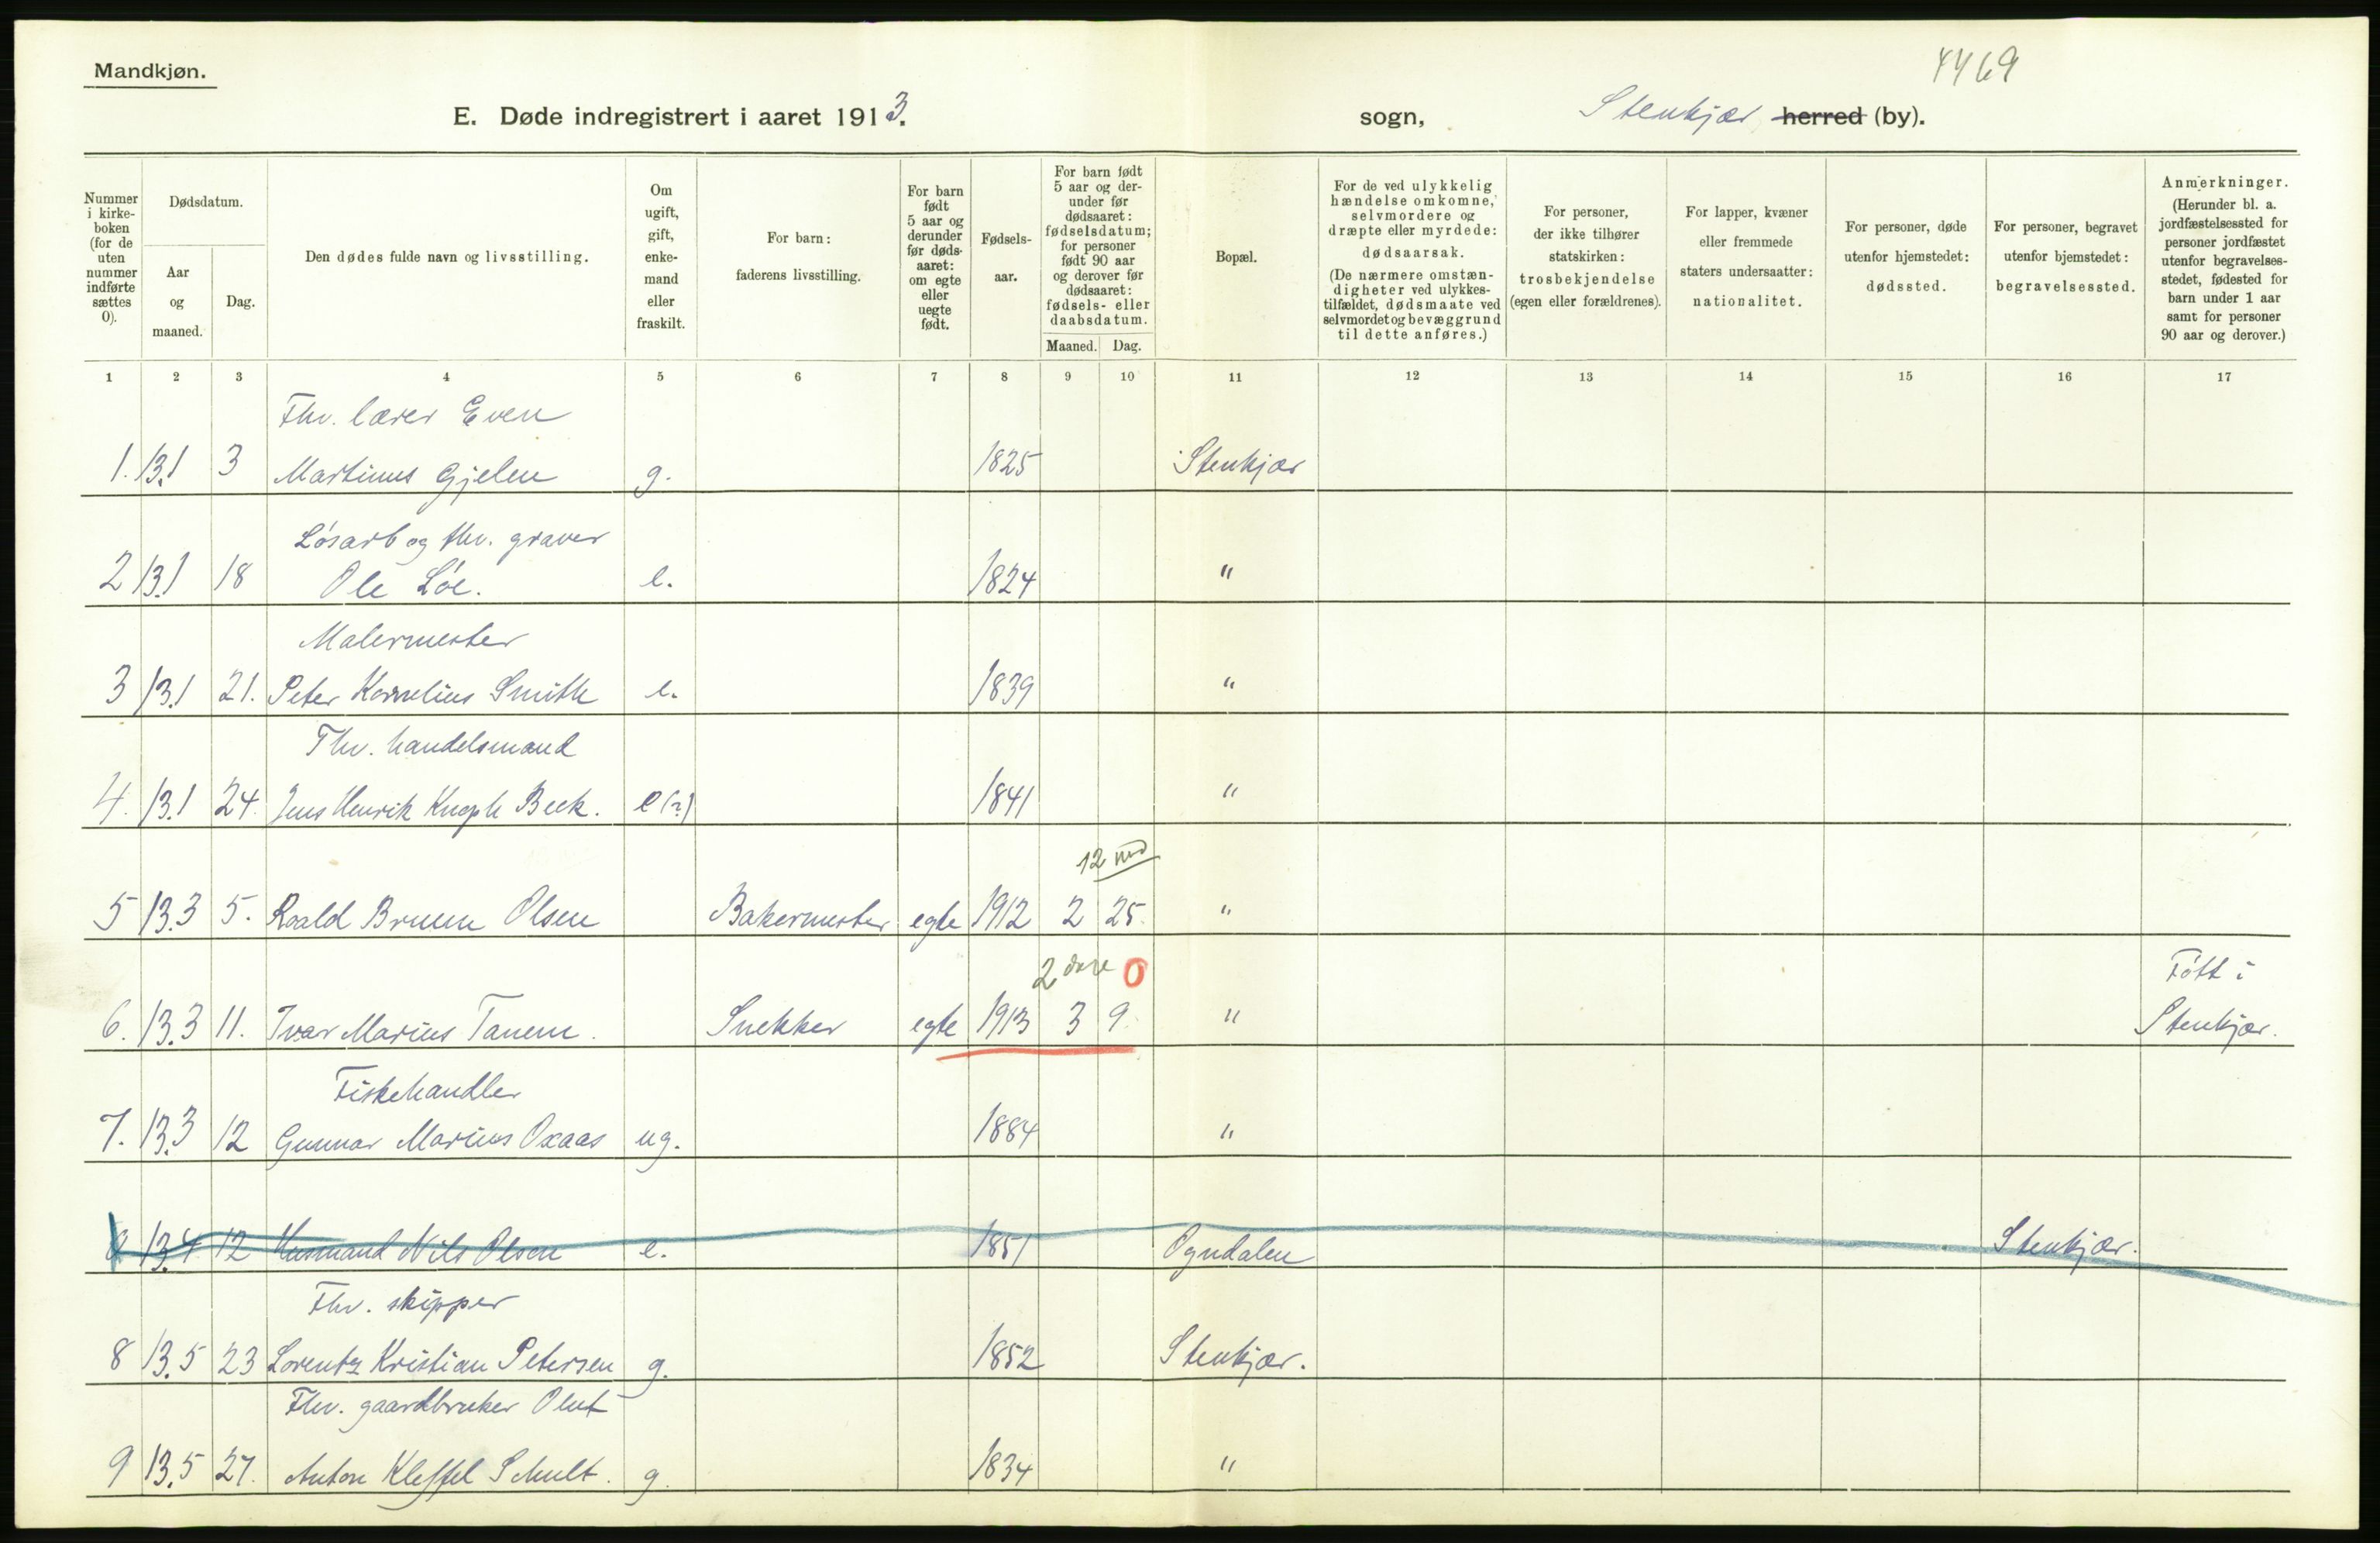 4469
Mandkjøn.
E. Døde indregistrert i aaret 1913. sogn, Stenkjær herred (by).
Nummer i kirke-boken (for de uten nummer indførte sættes 0).
Dødsdatum.
Aar og maaned.
Dag.
Den dødes fulde navn og livsstilling.
Om ugift, gift, enke-mand eller fraskilt.
For barn: faderens livsstilling.
For barn født 5 aar og derunder før døds-aaret: om egte eller uegte født.
Fødsels-aar.
For barn født 5 aar og der-under før dødsaaret: fødselsdatum; for personer født 90 aar og derover før dødsaaret: fødsels- eller daabsdatum.
Maaned. Dag.
Bopæl.
For de ved ulykkelig hændelse omkomne, selvmordere og dræpte eller myrdede: dødsaarsak. (De nærmere omstæn-digheter ved ulykkes-tilfældet, dødsmaate ved selvmordet og bevæggrund til dette anføres.)
For personer, der ikke tilhører statskirken: trosbekjendelse (egen eller forældrenes).
For lapper, kvæner eller fremmede staters undersaatter: nationalitet.
For personer, døde utenfor hjemstedet: dødssted.
For personer, begravet utenfor bjemstedet: begravelsessted.
Anmerkninger. (Herunder bl. a. jordfæstelsessted for personer jordfæstet utenfor begravelses-stedet, fødested for barn under 1 aar samt for personer 90 aar og derover.)
1 2 3 4 5 6 7 8 9 10 11 12 13 14 15 16 17
Fhv. lærer Even
1. 13.1 3 Martinus Gjelen g. 1825 Stenkjær
Løsarb og fhv. graver
2 13.1 18 Ole Løe. e. 1824 "
Malermester
3 13.1 21. Peter Kornelius Smith e. 1839 "
Fhv. handelsmand
4. 13.1 24. Jens Henrik Knoph Beck. e(?) 1841 "
12 md
5 13.3 5. Roald Bruem Olsen Bakermester egte 1912 2 25. "
2 dage 0 Født i
6. 13.3 11. Ivar Marius Tanem. Snekker egte 1913 3 9. " Stenkjær.
Fiskehandler
7. 13.3 12 Gunnar Marius Oxaas ug. 1884 "
8 13.4 12 Husmand Nils Olsen e. 1851 Ogndalen Stenkjær.
Fhv. skipper
8 13.5 23 Lorentz Kristian Petersen g. 1852 Stenkjær.
Fhv. gaardbruker Oluf
9 13.5 27. Anton Kleffel Schult. g. 1834 "